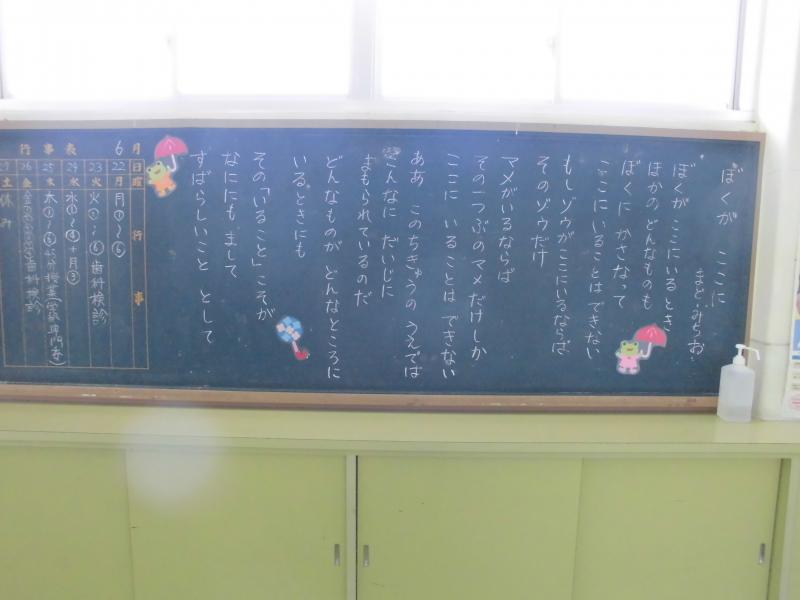 ぼくが ここに
まど・みちお
ぼくが ここにいるとき
ほかの どんなものも
ぼくに かさなって
ここにいることは できない
もしゾウが ここにいるならば
そのゾウだけ
マメがいるならば
その一つぶの マメ だけしか
ここに いることは できない
ああ このちきゅうの うえでは
こんなに だいじに
まもられているのだ
どんなものが どんなところに
いるときにも
その「いること」こそが
なににも まして
すばらしいこと として
6月 行事表
日曜 行事
22月 月①~⑥
23火 火①~⑥ 歯科検診
24水 水①~④+月③
25木 木①~⑤
26金 歯科検診
27土 休み